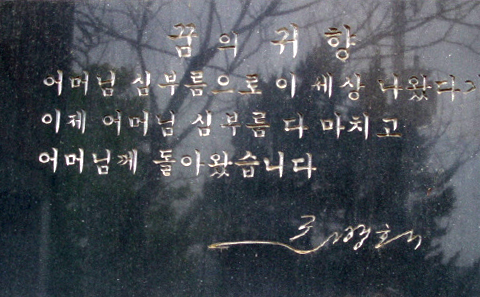 꿈의 귀향
어머님 심부름으로 이 세상 나왔다가
이제 어머님 심부름 다 마치고
어머님께 돌아왔습니다